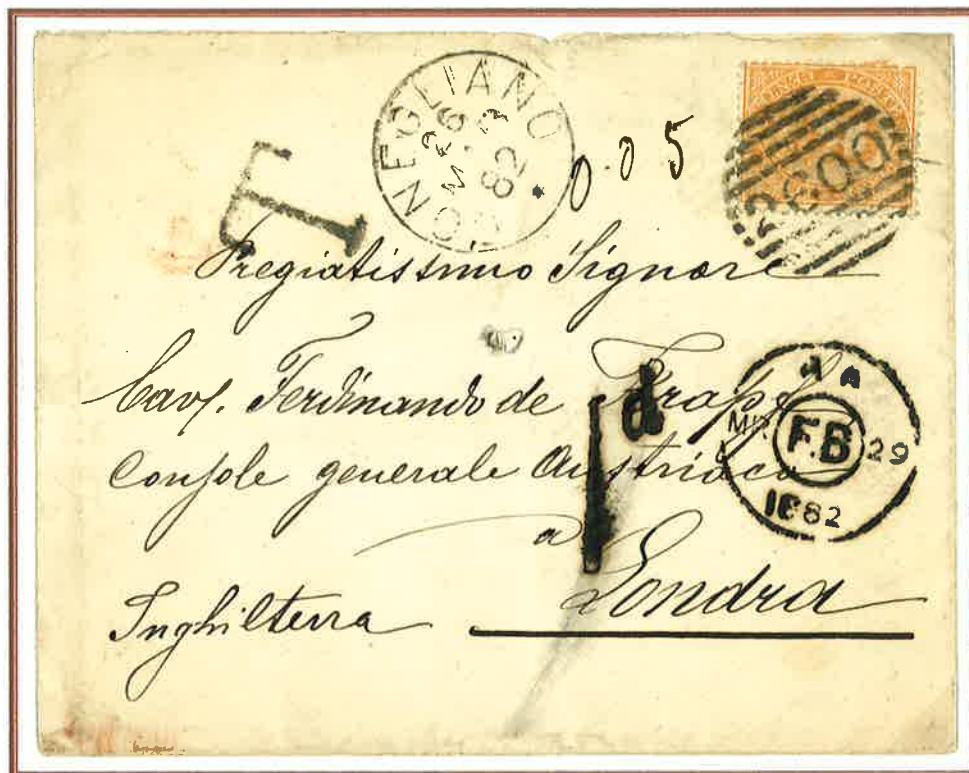 CONEGLIANO
26
82
T
0.05
Pregiatissimo Signore
Cav. Ferdinando de
1d
Console generale Austriaco
a
Londra
Inghilterra
A A
MR 29
F.B
1882